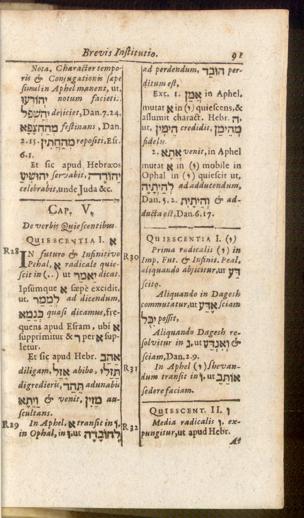 Brevis Institutio. 91
Nota. Character tempo-
ris & Conjugationis sæpe
simul in Aphel manent, ut,
יהודעו notum facieti.
יהשפל dejiciet, Dan. 7. 24.
מהחצפא festinans, Dan.
2. 15. מהחתין repositi, Es.
6. 1.
Et sic apud Hebræos
יהושיע servabit, יהודה
celebrabit, unde Juda &c.
CAP. V.
De verbis Quiescentibus
QUIESCENTIA I. א
R28 IN futuro & Infinitivo
Pehal, א radicale quie-
scit in (..) ut יאמר dicat
Ipsumque א sæpe excidit,
ut לממר ad dicendum,
כנמא quasi dicamus, fre-
quens apud Esram, ubi א
supprimitur & ר per נ sup-
letur.
Et sic apud Hebr. אהב
diligam, אזל abibo, תזלי
digredieris, תהר adunabis
מזין & venit, ויתא au-
scultans.
R29 In Aphel, א transit in ו,
in Ophal, in ו, ut להובדה
ad perdendum, הובד per-
ditum est,
Exc. 1. אמן in Aphel,
mutat א in (י) quiescens, &
assumit charact. Hebr. ה,
ut, הימין credidit, מהימן
fidelis.
2. אתה venit, in Aphel
mutat א in (י) mobile in
Ophal in (י) quiescit ut,
להיתיה ad adducendum,
Dan. 5. 2. היתית & ad-
ducta est, Dan. 6. 17.
QUIESCENTIA I. (י)
R30 Prima radicalis (י) in
Imp. Fut. & Infinit. Peal,
aliquando abjicitur, ut דע
scito.
Aliquando in Dagesh
commutatur, ut אדע sciam
יכל possit,
Aliquando Dagesh re-
solvitur in נ, ut אנדע &
sciam, Dan. 2. 9.
R31 In Aphel (י) Shevan-
dum transit in ו, ut אותב
sedere faciam.
QUIESCENT. II. ו
R32 Media radicalis ו, ex-
pungitur, ut apud Hebr.
At